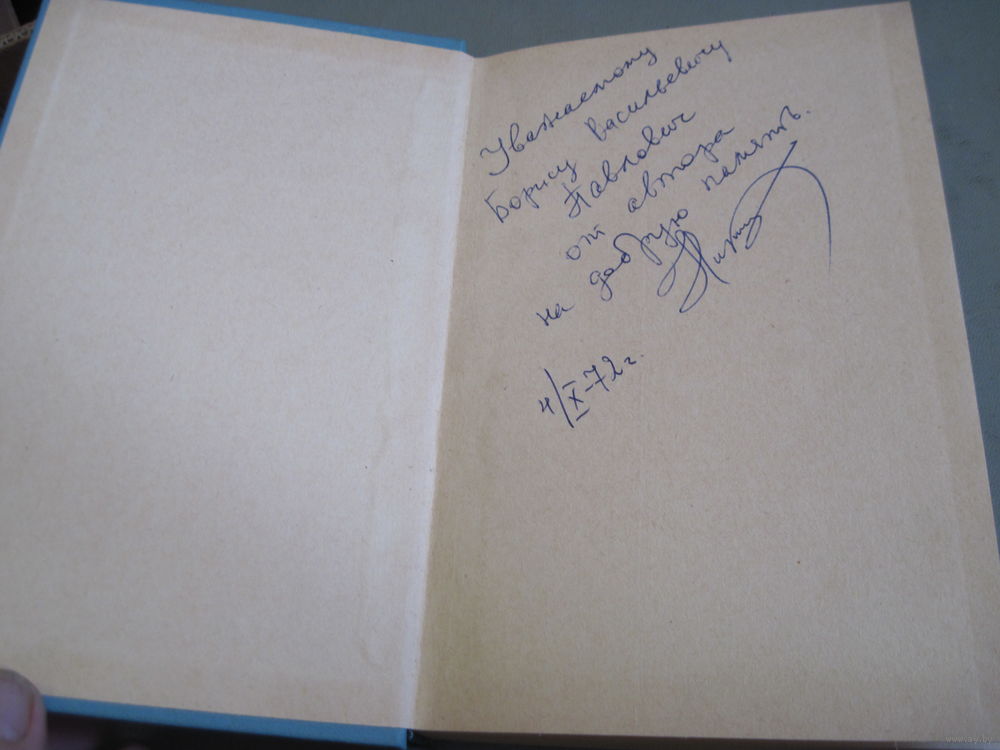 Уважаемому
Борису Васильевичу
Павлович
от автора
на добрую память.
4/X-72 г.
www.ay.by